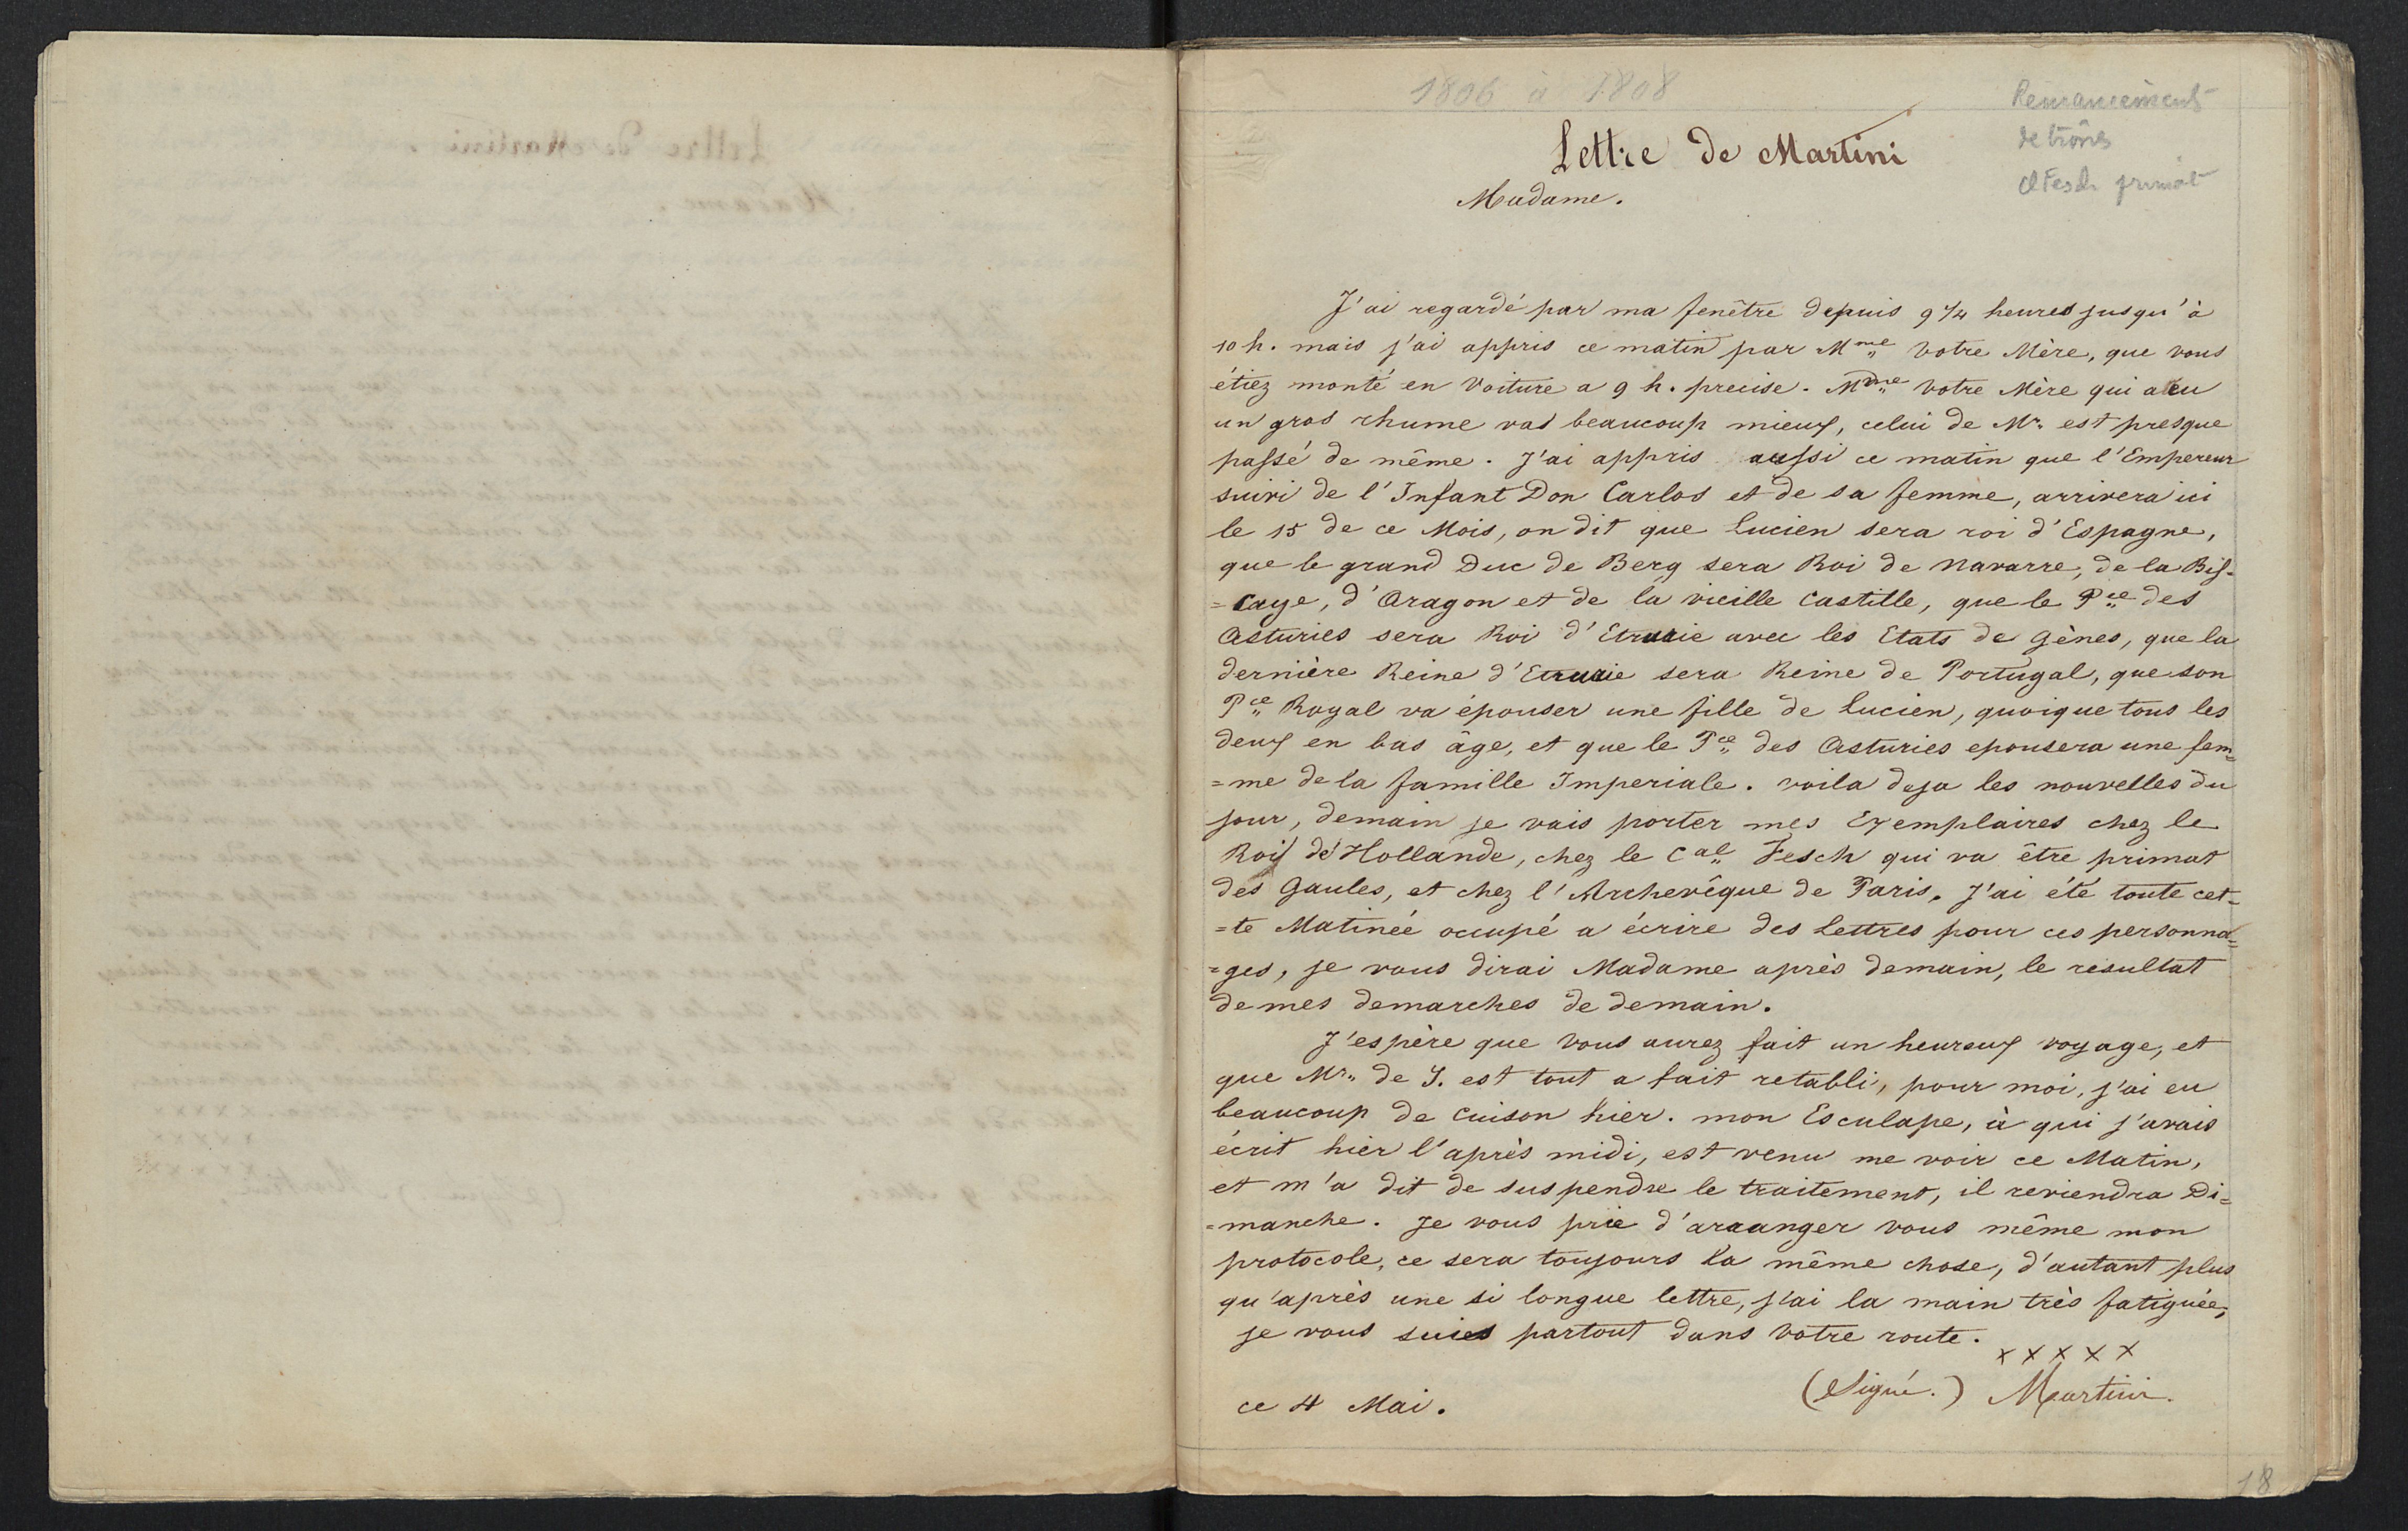 1806 à 1808
Remaniement
de trônes
et Fesch primat
Lettre de Martini
Madame.
J'ai regardé par ma fenêtre depuis 9 1/4 heures jusqu'à
10 h. mais j'ai appris ce matin par Mme votre Mère, que vous
étiez monté en Voiture a 9 h. precise. Mme votre Mère qui a eu
un gros rhume vas beaucoup mieux, celui de Mr. est presque
passé de même. J'ai appris aussi ce matin que l'Empereur
suivi de l'Infant Don Carlos et de sa femme, arrivera ici
le 15 de ce Mois, on dit que Lucien sera roi d'Espagne,
que le grand Duc de Berg sera Roi de Navarre, de la Bis-
=caye, d'Aragon et de la vieille Castille, que le Pce des
Asturies sera Roi d'Etrurie avec les Etats de Gènes, que la
dernière Reine d'Etrurie sera Reine de Portugal, que son
Pce Royal va épouser une fille de Lucien, quoique tous les
deux en bas âge, et que le Pce des Asturies epousera une fem=
=me de la famille Imperiale. voila deja les nouvelles du
jour, demain je vais porter mes Exemplaires chez le
Roi de Hollande, chez le Cal Fesch qui va être primat
des Gaules, et chez l'Archevêque de Paris. J'ai été toute cet=
=te Matinée occupé a écrire des Lettres pour ces personna=
=ges, je vous dirai Madame après demain, le resultat
de mes demarches de demain.
J'espère que vous aurez fait un heureux voyage, et
que Mr. de S. est tout a fait retabli, pour moi, j'ai eu
beaucoup de cuison hier. mon Esculape, à qui j'avais
écrit hier l'après midi, est venu me voir ce Matin,
et m'a dit de suspendre le traitement, il reviendra Di=
=manche. Je vous prie d'araanger vous même mon
protocole, ce sera toujours la même chose, d'autant plus
qu'après une si longue lettre, j'ai la main très fatiguée;
je vous suies partout dans votre route.
x x x x x
(Signé.) Martini.
ce 4 Mai.
18